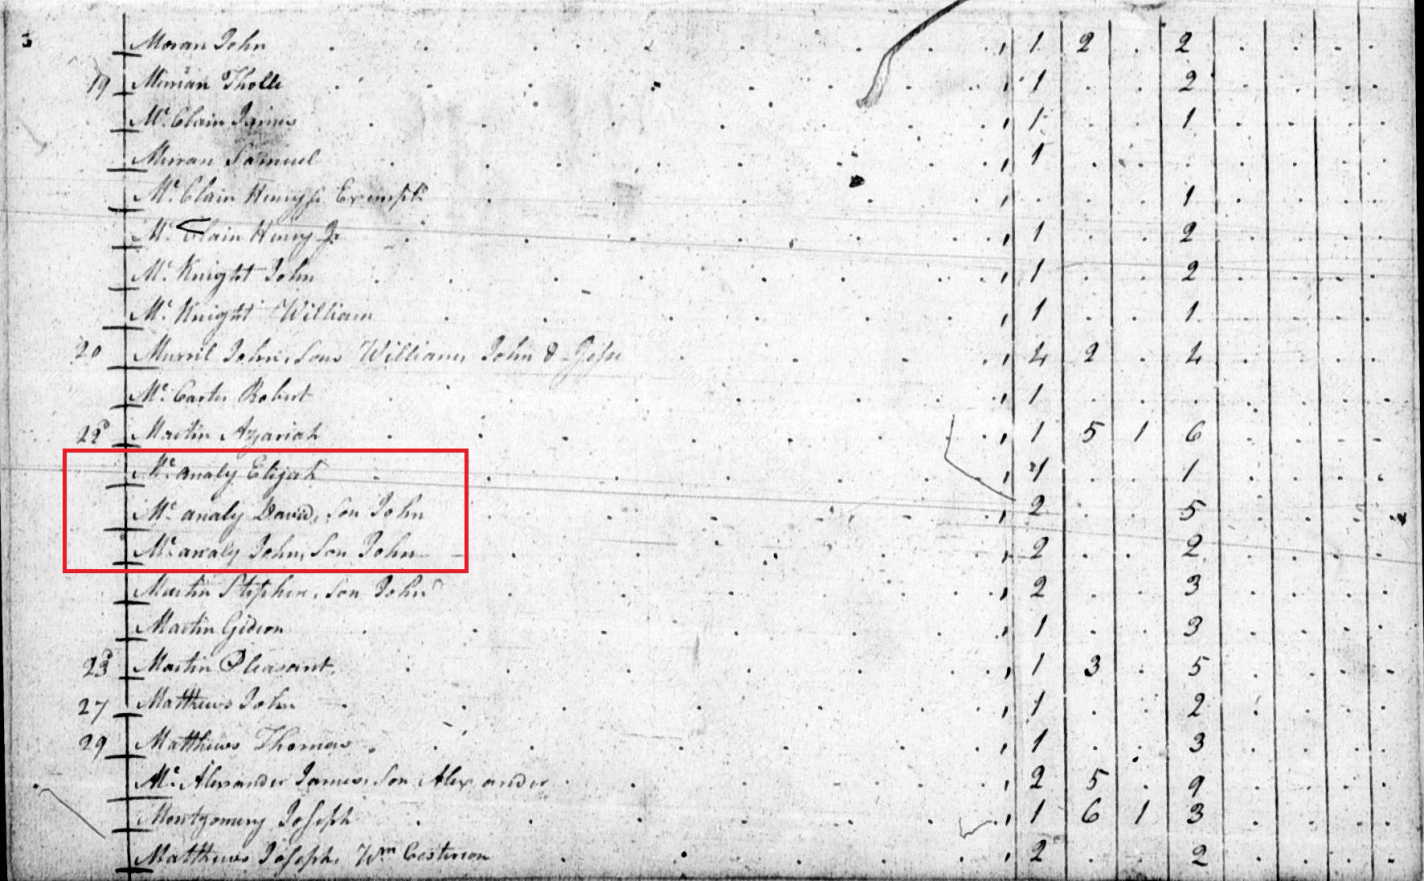 3 Moran John , 1 2 . 2
19 Moran Tholb , 1 . . 2
Mc. Clain James , 1 . . 1
Moran Samuel , 1
Mc. Clain Henry Sr Exempt . . . 1
Mc. Clain Henry Jr , 1 . . 2
Mc. Knight John , 1 . . 2
Mc. Knight William , 1 . . 1
20 Murril John, Sons William, John & Jesse , 4 2 . 4
Mc. Carter Robert , 1
22d Martin Azariah , 1 5 1 6
Mc. analy Elijah , 1 . . 1
Mc. analy David, Son John , 2 . . 5
Mc. analy John, Son John , 2 . . 2
Martin Stephen, Son John , 2 . . 3
Martin Gideon , 1 . . 3
23d Martin Pleasant , 1 3 . 5
27 Matthews John , 1 . . 2
29 Matthews Thomas , 1 . . 3
Mc. Alexander James, Son Alexander , 2 5 . 9
Montgomery Joseph , 1 6 1 3
Matthews Joseph, Wm , 2 . . 2